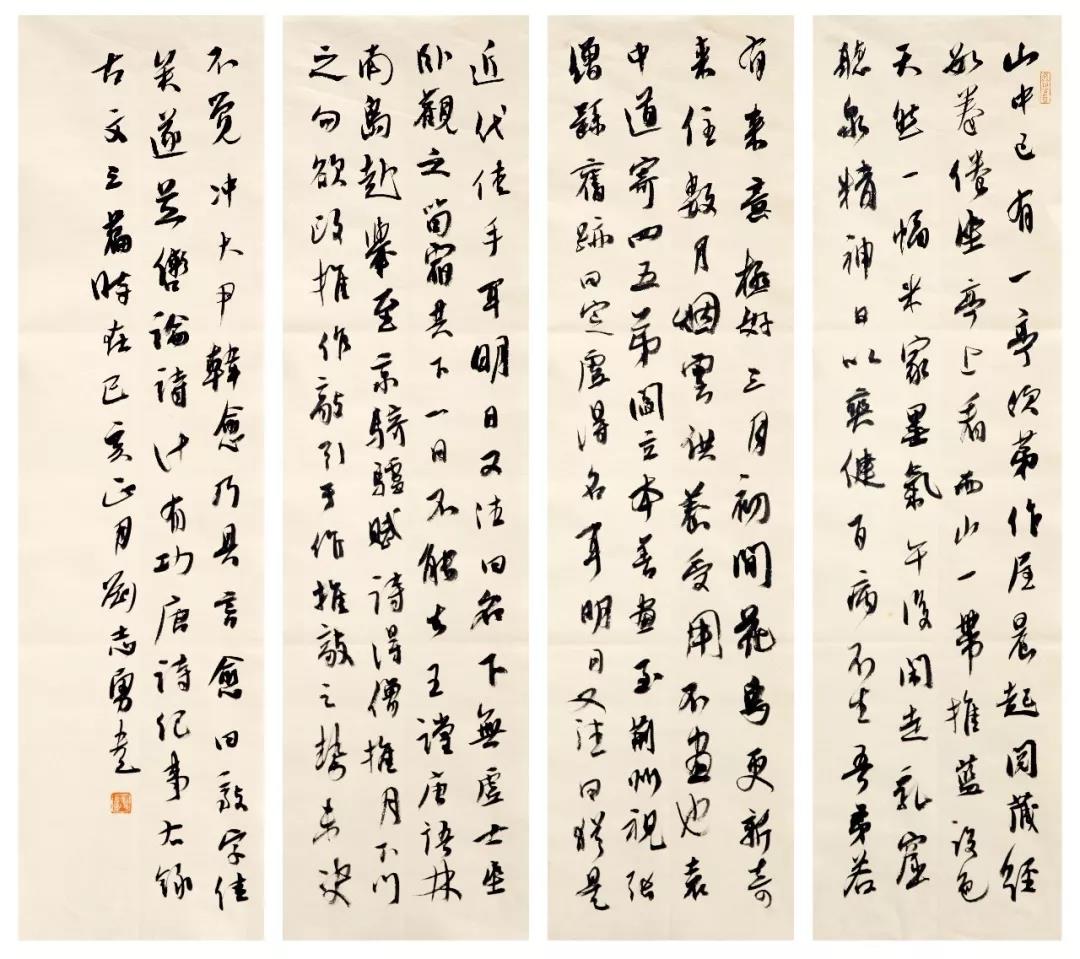 山中已有一亭次第作屋晨起閱藏經
數卷倦坐亭上看西山一帶推藍設色
天然一幅米家墨氣午後閑走乳窟
聽泉精神日以爽健百病不生吾弟若
有来意極好三月初間花鳥更新奇
来住數月烟雲供養受用不盡也袁
中道寄四五弟閻立本善畫至荊州視張
僧繇舊跡曰定虛得名耳明日又往曰猶是
近代佳手耳明日又往曰名下無虛士坐
卧觀之留宿其下一日不能去王讜唐語林
賈島赴舉至京騎驢賦詩得僧推月下門
之句欲改推作敲引手作推敲之勢未決
不覺冲大尹韓愈乃具言愈曰敲字佳
矣遂並轡論詩計有功唐詩紀事右録
古文三篇時在己亥正月劉志勇書